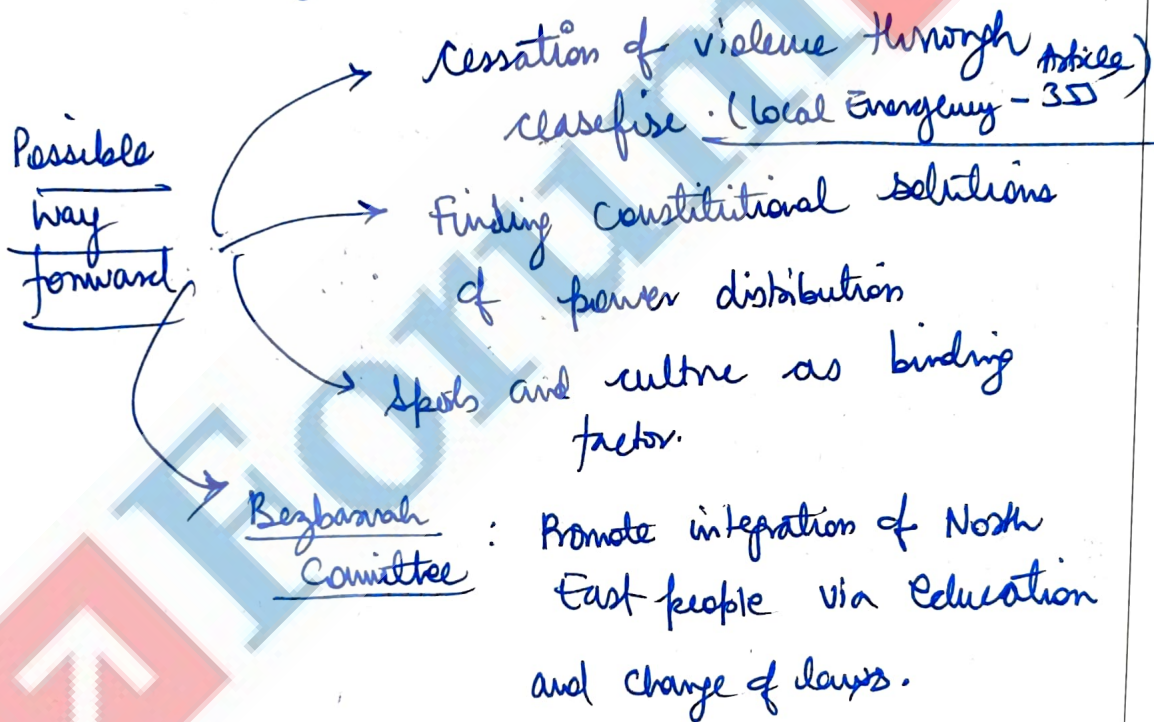 Possible
way
forward
cessation of violence through
ceasefire. (Local Emergency - 355 Article)
Finding Constitutional solutions
of power distribution
Sports and culture as binding
factor.
Bezbaruah
Committee : Promote integration of North
East people via Education
and change of laws.
Forum